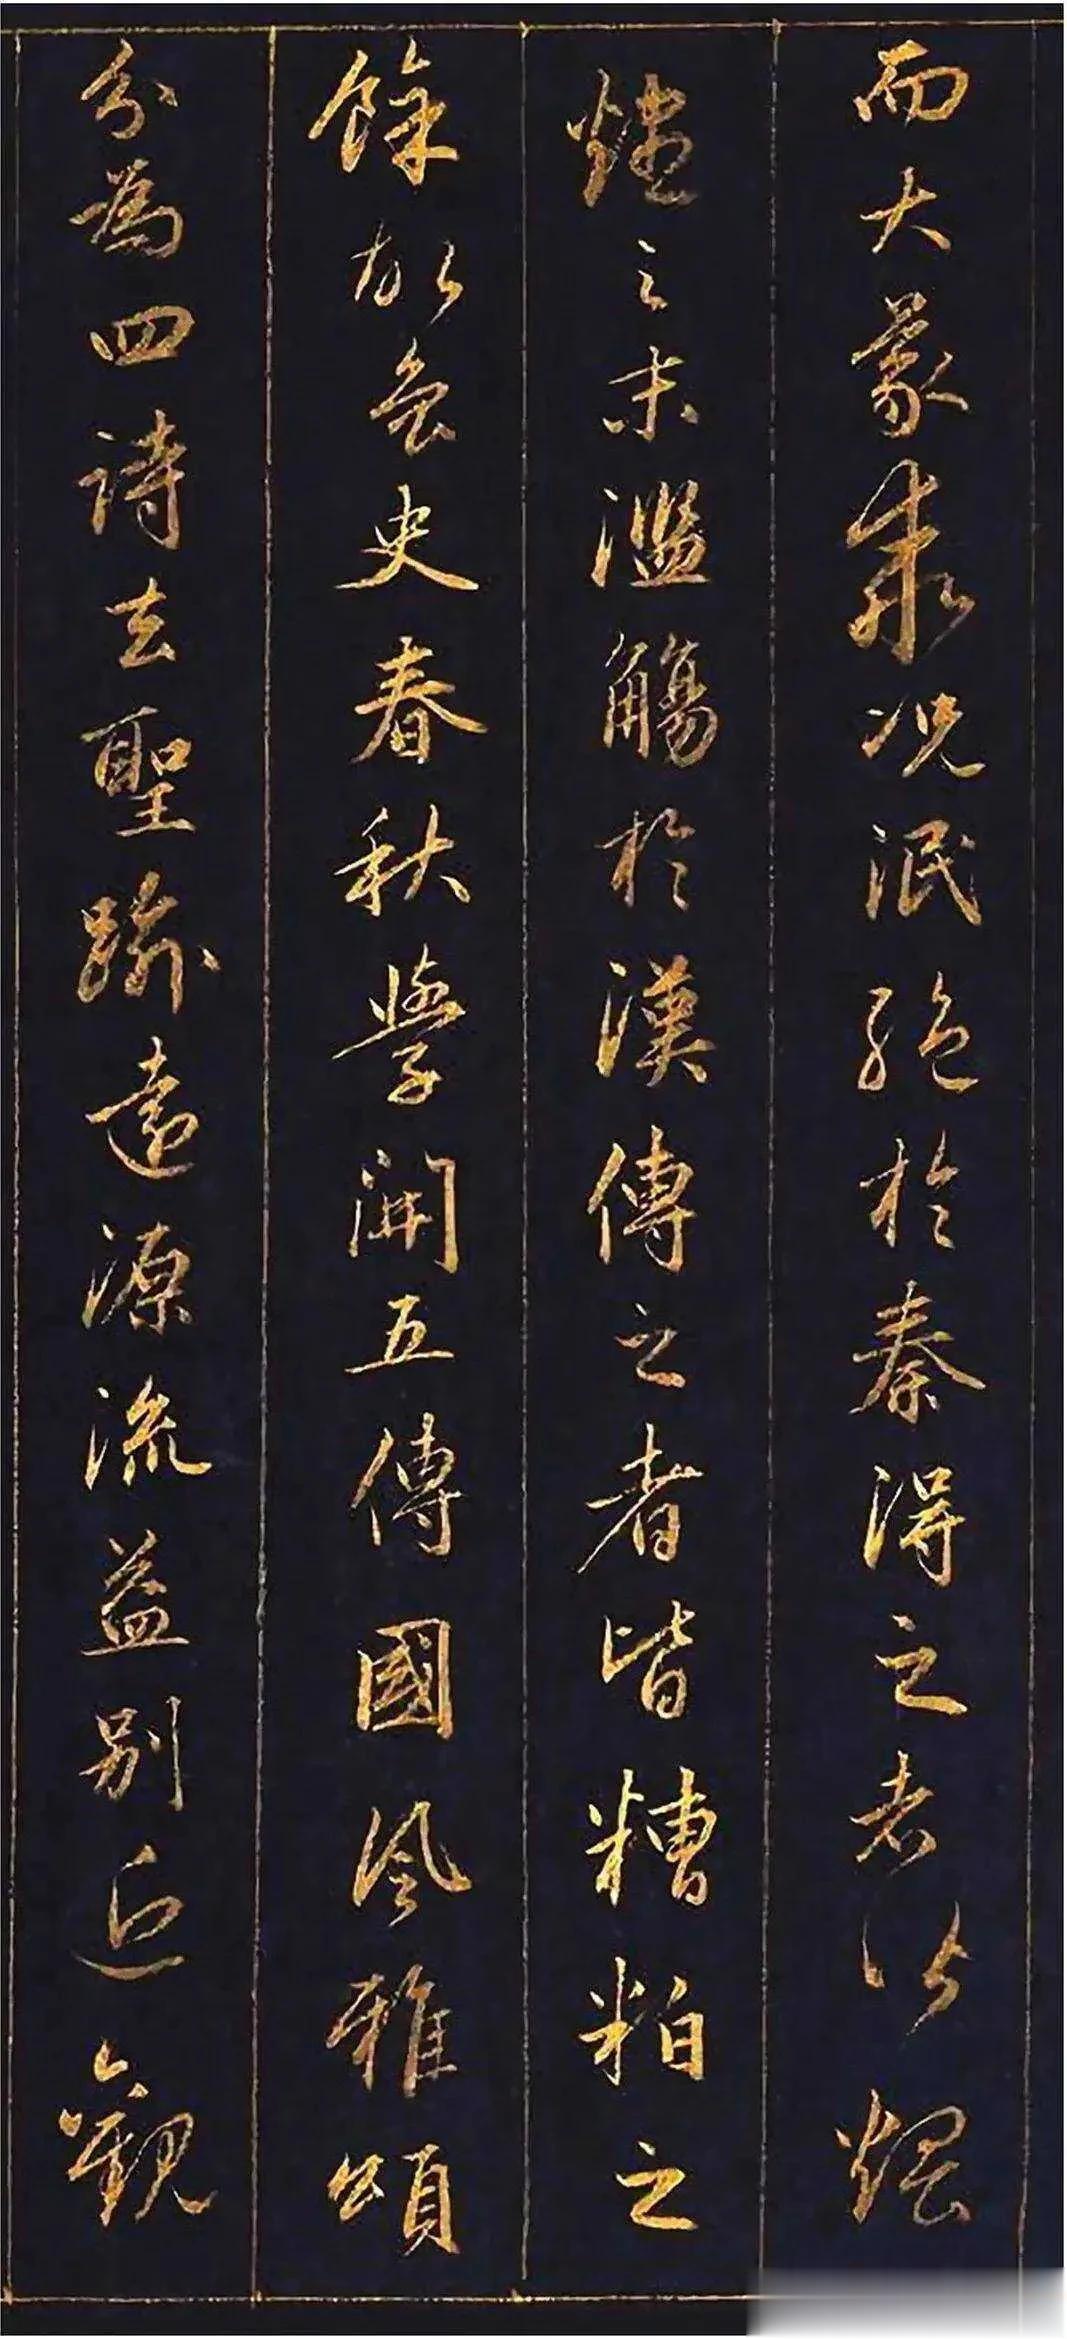 而大義乖况泯絕於秦得之者皆煨
燼之末濫觴於漢傳之者皆糟粕之
餘故魯史春秋學開五傳國風雅頌
分為四詩去聖踰遠源流益別近觀